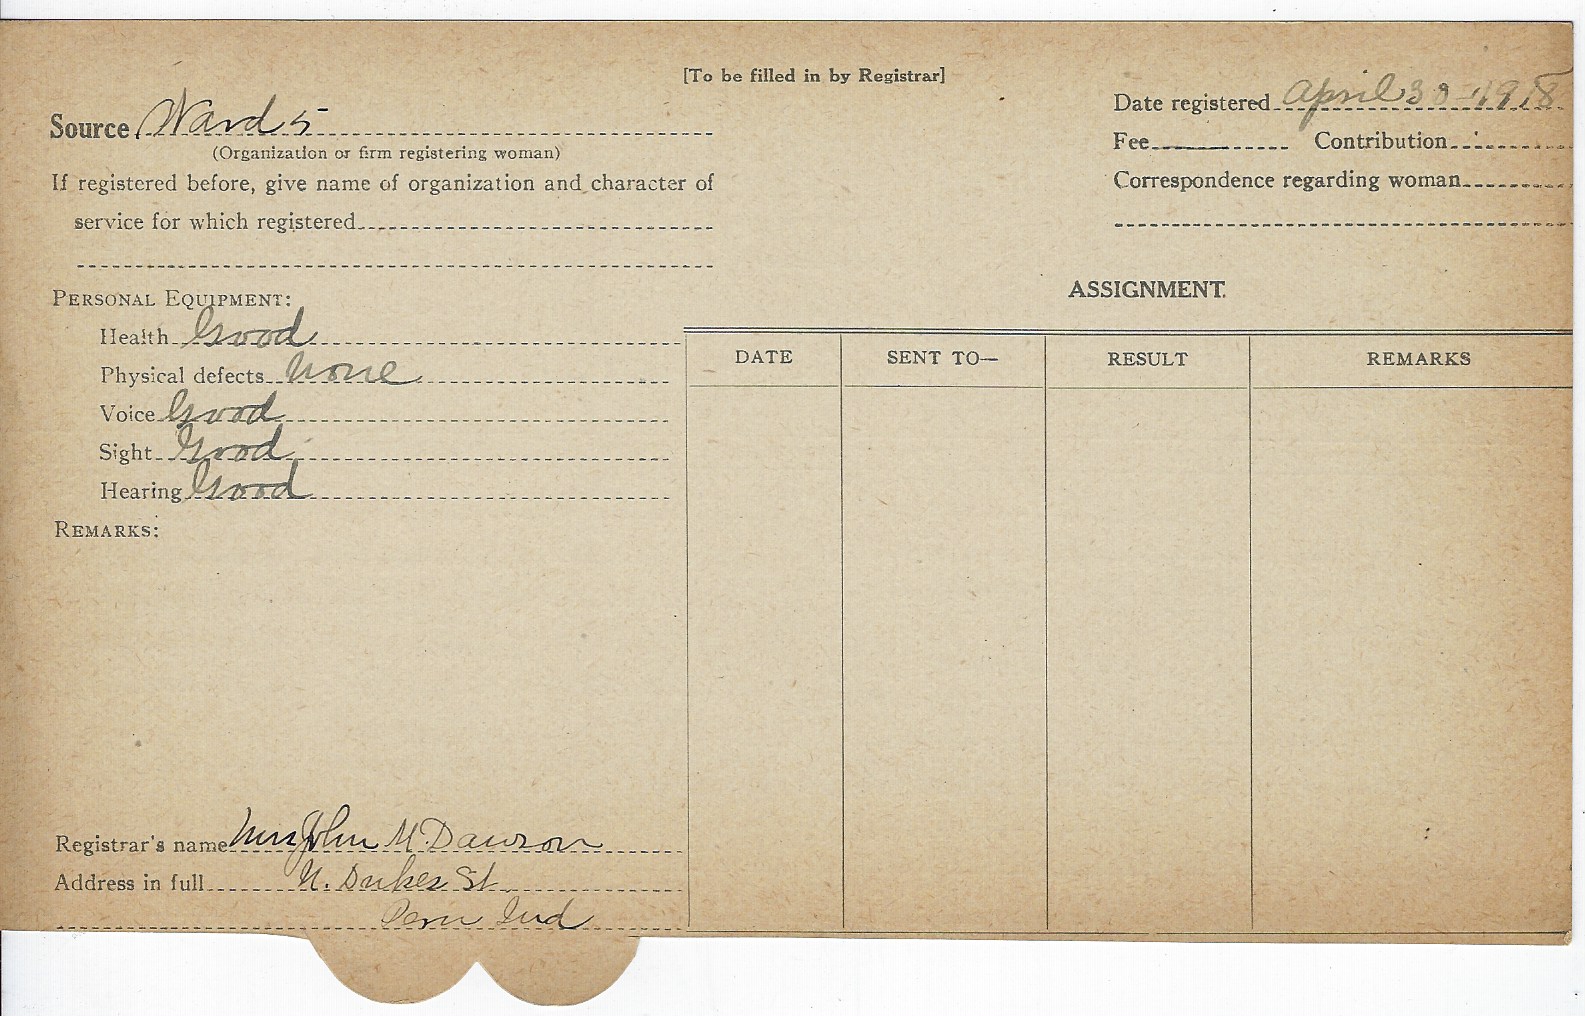 [To be filled in by Registrar]
Source Ward 5
(Organization or firm registering woman)
If registered before, give name of organization and character of
service for which registered
Date registered April 30-1918
Fee Contribution
Correspondence regarding woman
PERSONAL EQUIPMENT:
Health Good
Physical defects None
Voice Good
Sight Good
Hearing Good
REMARKS:
ASSIGNMENT.
DATE SENT TO— RESULT REMARKS
Registrar's name Mrs John M. Dawson
Address in full N. Dukes St
Peru Ind